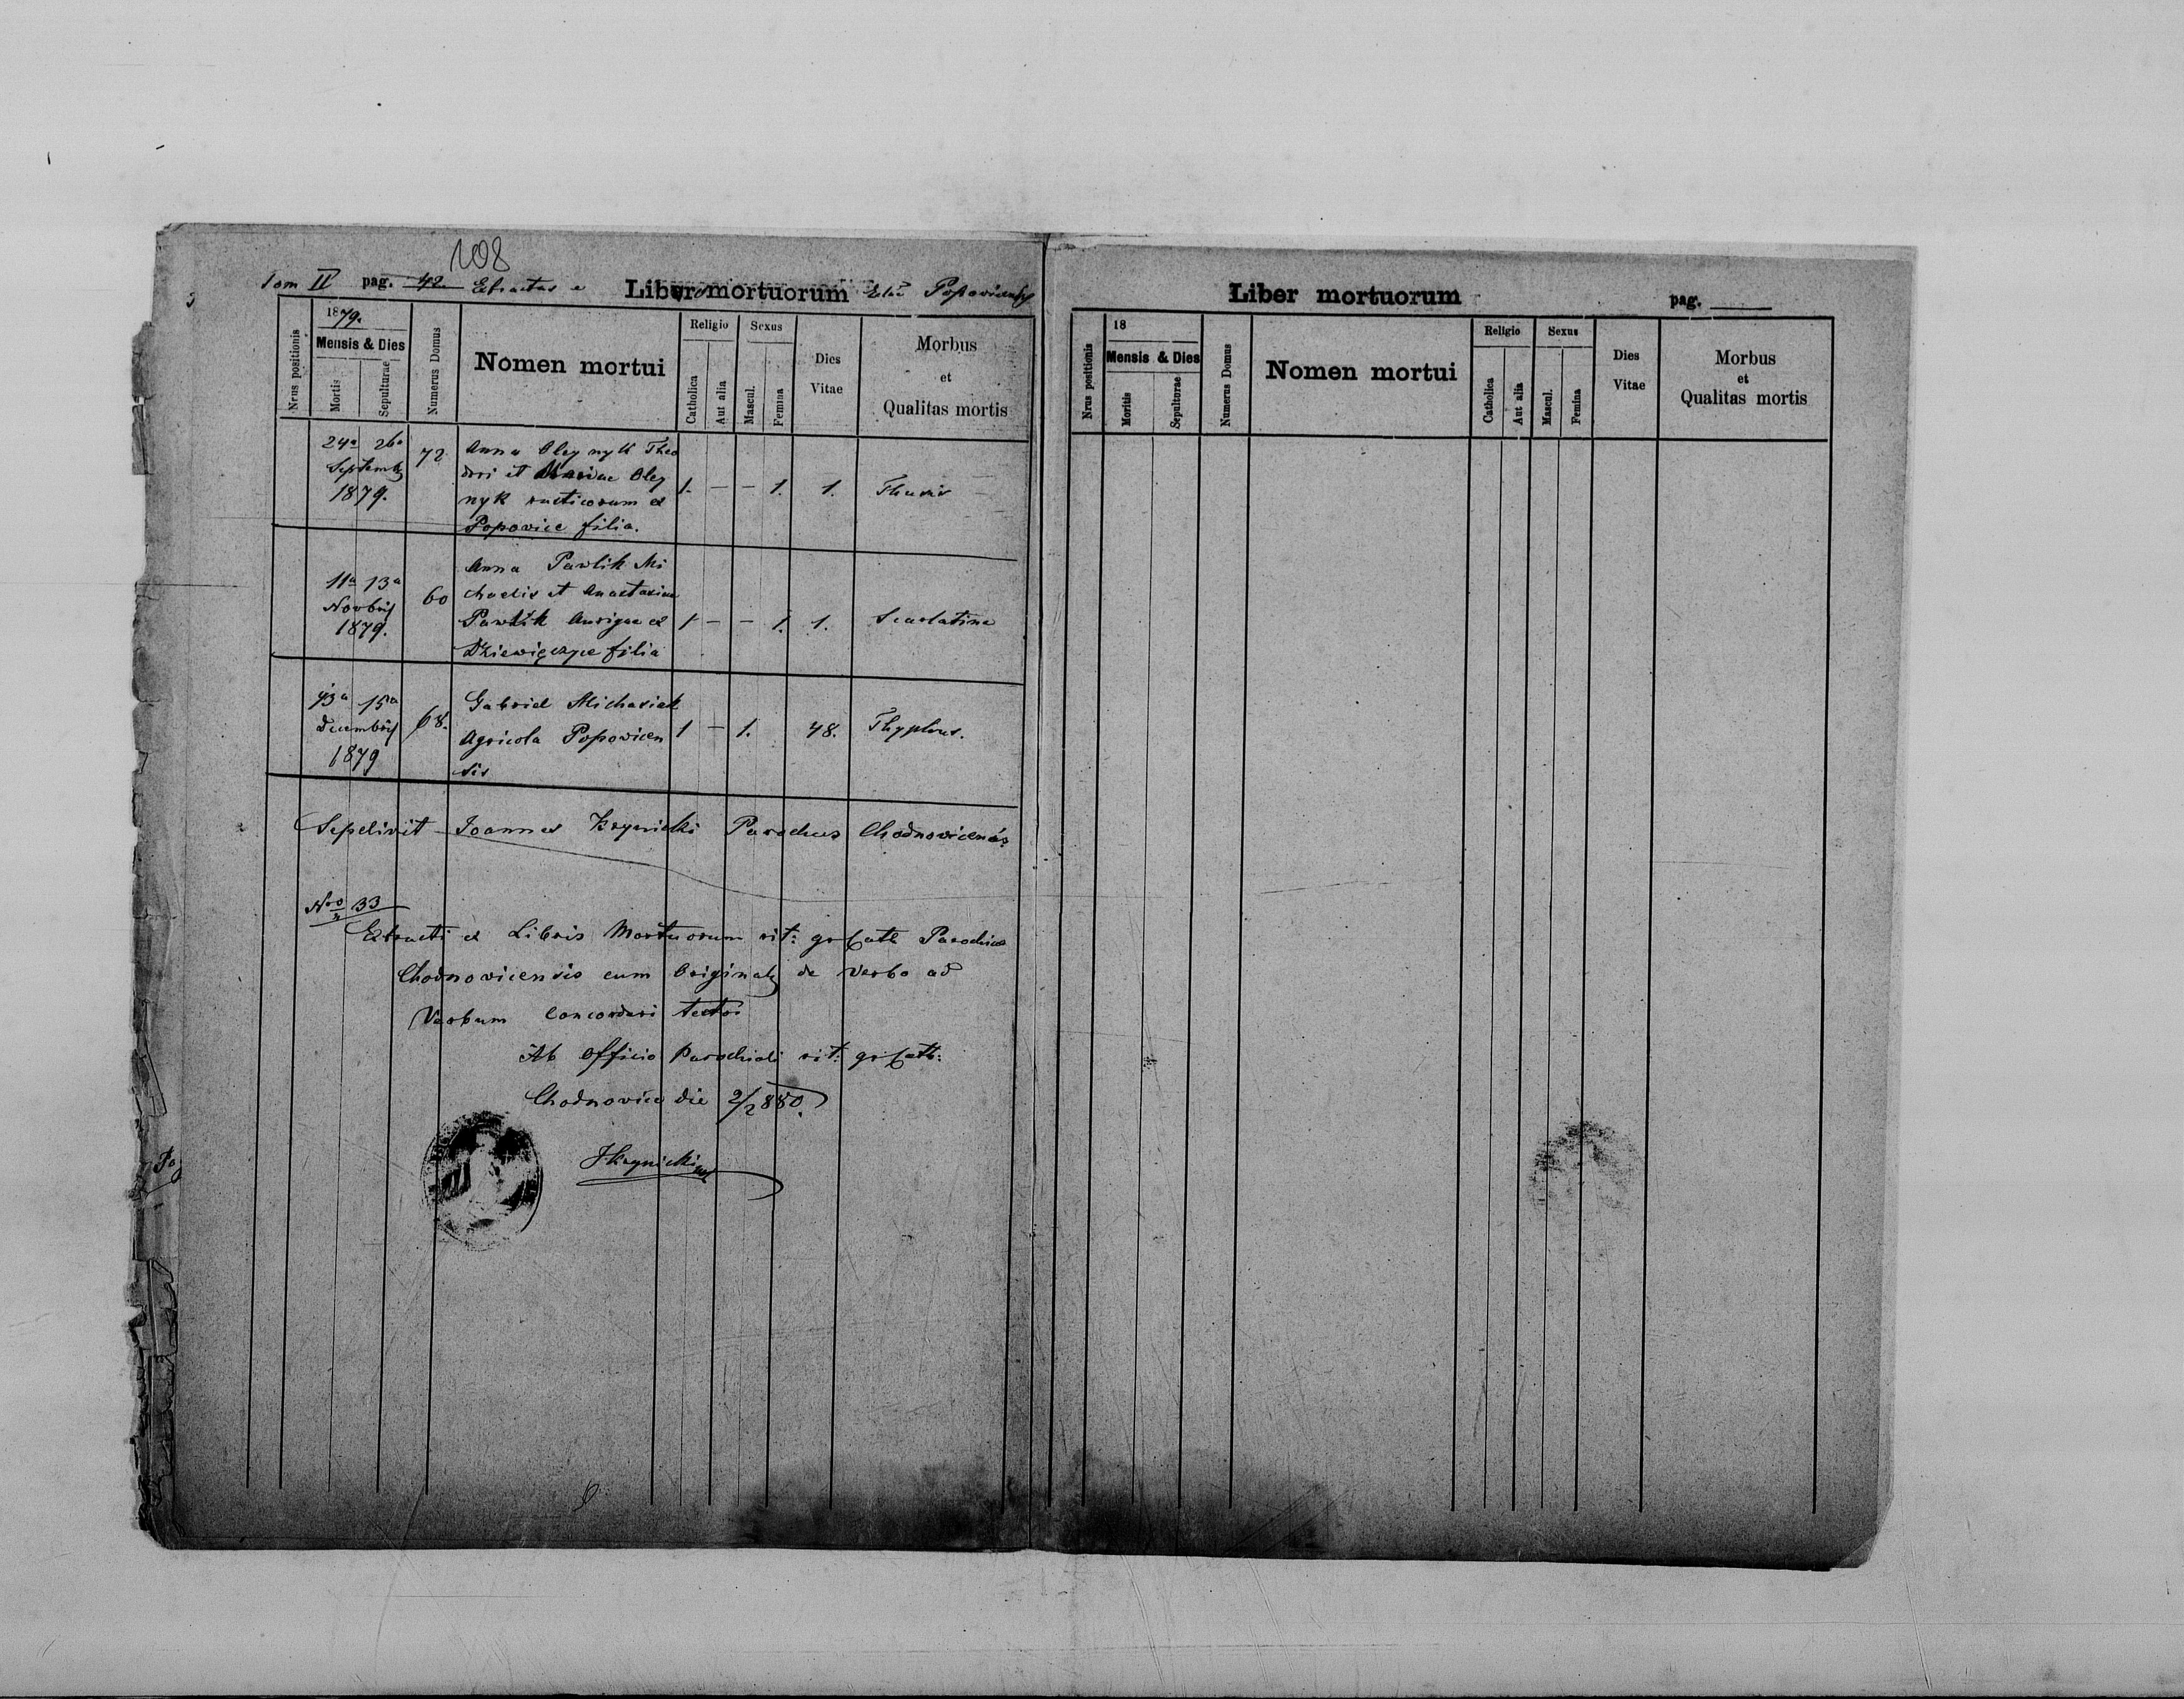 108
Tom II pag. 42 Extractus e Libro mortuorum Popovicensis
1879.
Nrus positionis
Mensis & Dies
Mortis
Sepulturae
Numerus Domus
Nomen mortui
Religio
Catholica
Aut alia
Sexus
Mascul.
Femina
Dies
Vitae
Morbus
et
Qualitas mortis
24a 26a
Septembr
1879.
72
Anna Oleynyk Theo
dori et Mariae Oley
nyk rusticorum ex
Popovice filia.
1. — — 1. 1. Thusis
11a 13a
Novbris
1879.
60
Anna Pawlik Mi
chaelis et Anastasiae
Pawlik Aurigae ex
Dziewięczyce filia
1 — — 1. 1. Scarlatina
13a 15a
Decembris
1879
68.
Gabriel Michasiak
Agricola Popovicen
sis
1 — 1. 48. Thyphus.
Sepelivit Joannes Krynicki Parochus Chodnovicensis
Nro 33
Extracti ex Libris Mortuorum rit: gr Cath Parochiae
Chodnovicensis cum Originali de verbo ad
Verbum concordari testor
Ab Officio Parochiali rit: gr Cath:
Chodnovice die 2/2 880.
JKrynicki
Liber mortuorum pag.
Nrus positionis
18
Mensis & Dies
Moritis
Sepulturae
Numerus Domus
Nomen mortui
Religio
Catholica
Aut alia
Sexus
Mascul.
Femina
Dies
Vitae
Morbus
et
Qualitas mortis